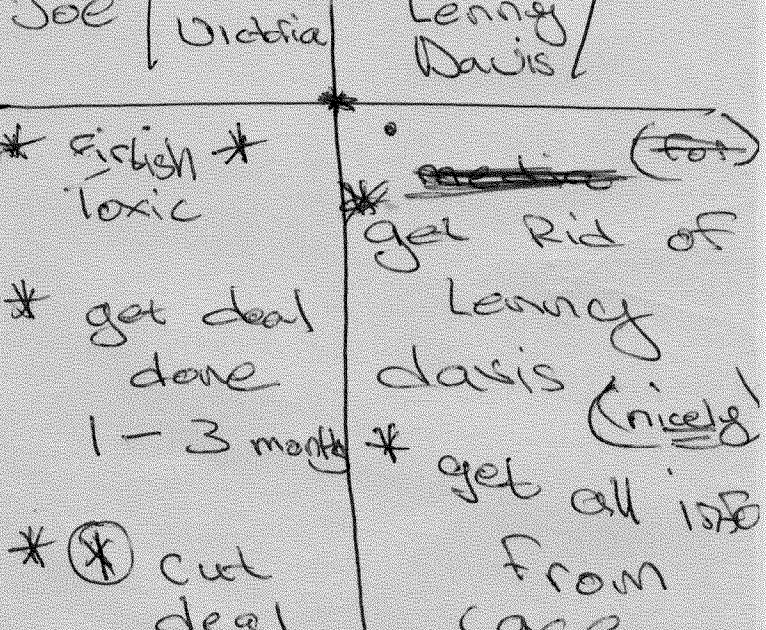 Joe / Victoria
Lenny
Davis /
* Firtish *
Toxic
* get deal
done
1 - 3 month
* * cut
deal
(for)
* get Rid of
Lenny
davis
(nicely)
* get all info
From